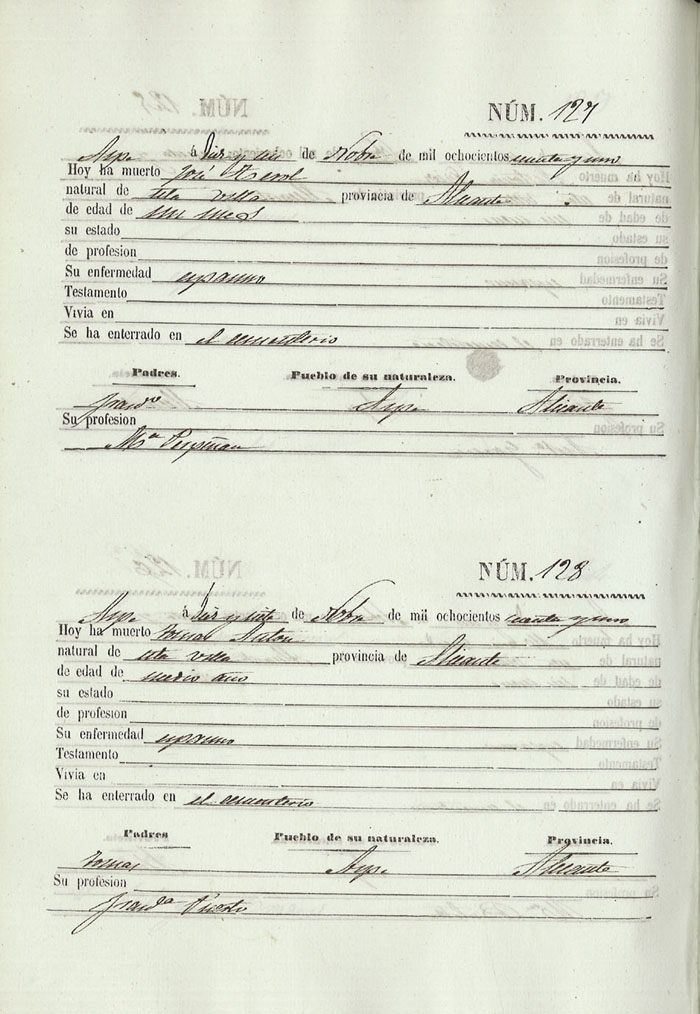 NÚM. 127
Aspe á diez y seis de Nobre de mil ochocientos cuarenta y uno
Hoy ha muerto José
natural de esta villa provincia de Alicante
de edad de un mes
su estado
de profesion
Su enfermedad espasmo
Testamento
Vivia en
Se ha enterrado en el cementerio
Padres. Pueblo de su naturaleza. Provincia.
Franco Aspe Alicante
Su profesion
Ma
NÚM. 128
Aspe á diez y siete de Nobre de mil ochocientos cuarenta y uno
Hoy ha muerto Tomas Anton
natural de esta villa provincia de Alicante
de edad de medio año
su estado
de profesion
Su enfermedad espasmo
Testamento
Vivia en
Se ha enterrado en el cementerio
Padres Pueblo de su naturaleza. Provincia.
Tomas Aspe Alicante
Su profesion
Franca